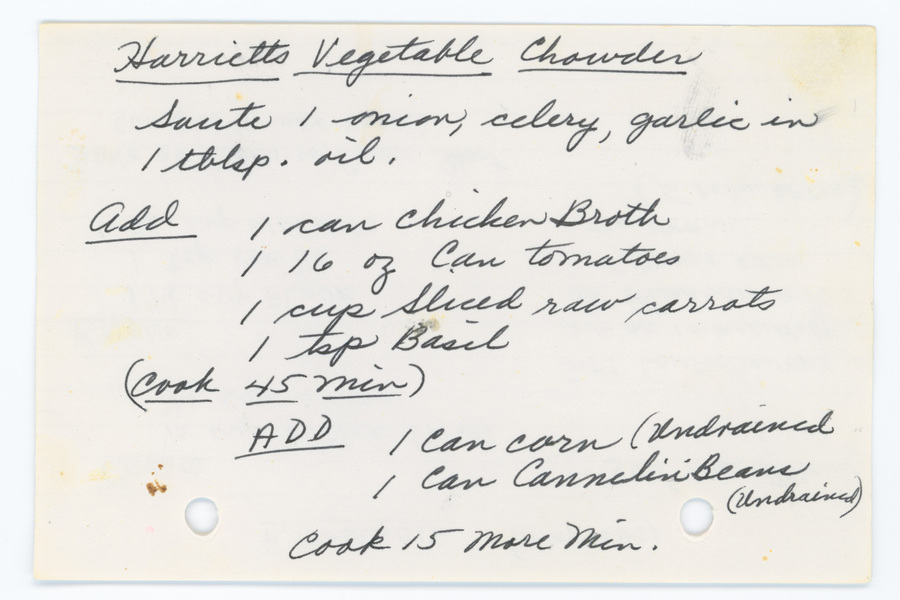 Harrietts Vegetable Chowder
Saute 1 onion, celery, garlic in
1 tblsp. oil.
Add 1 can Chicken Broth
1 16 oz Can tomatoes
1 cup Sliced raw carrots
1 tsp Basil
(Cook 45 Min)
ADD 1 Can corn (Undrained
1 Can Cannelini Beans
(Undrained)
Cook 15 More Min.